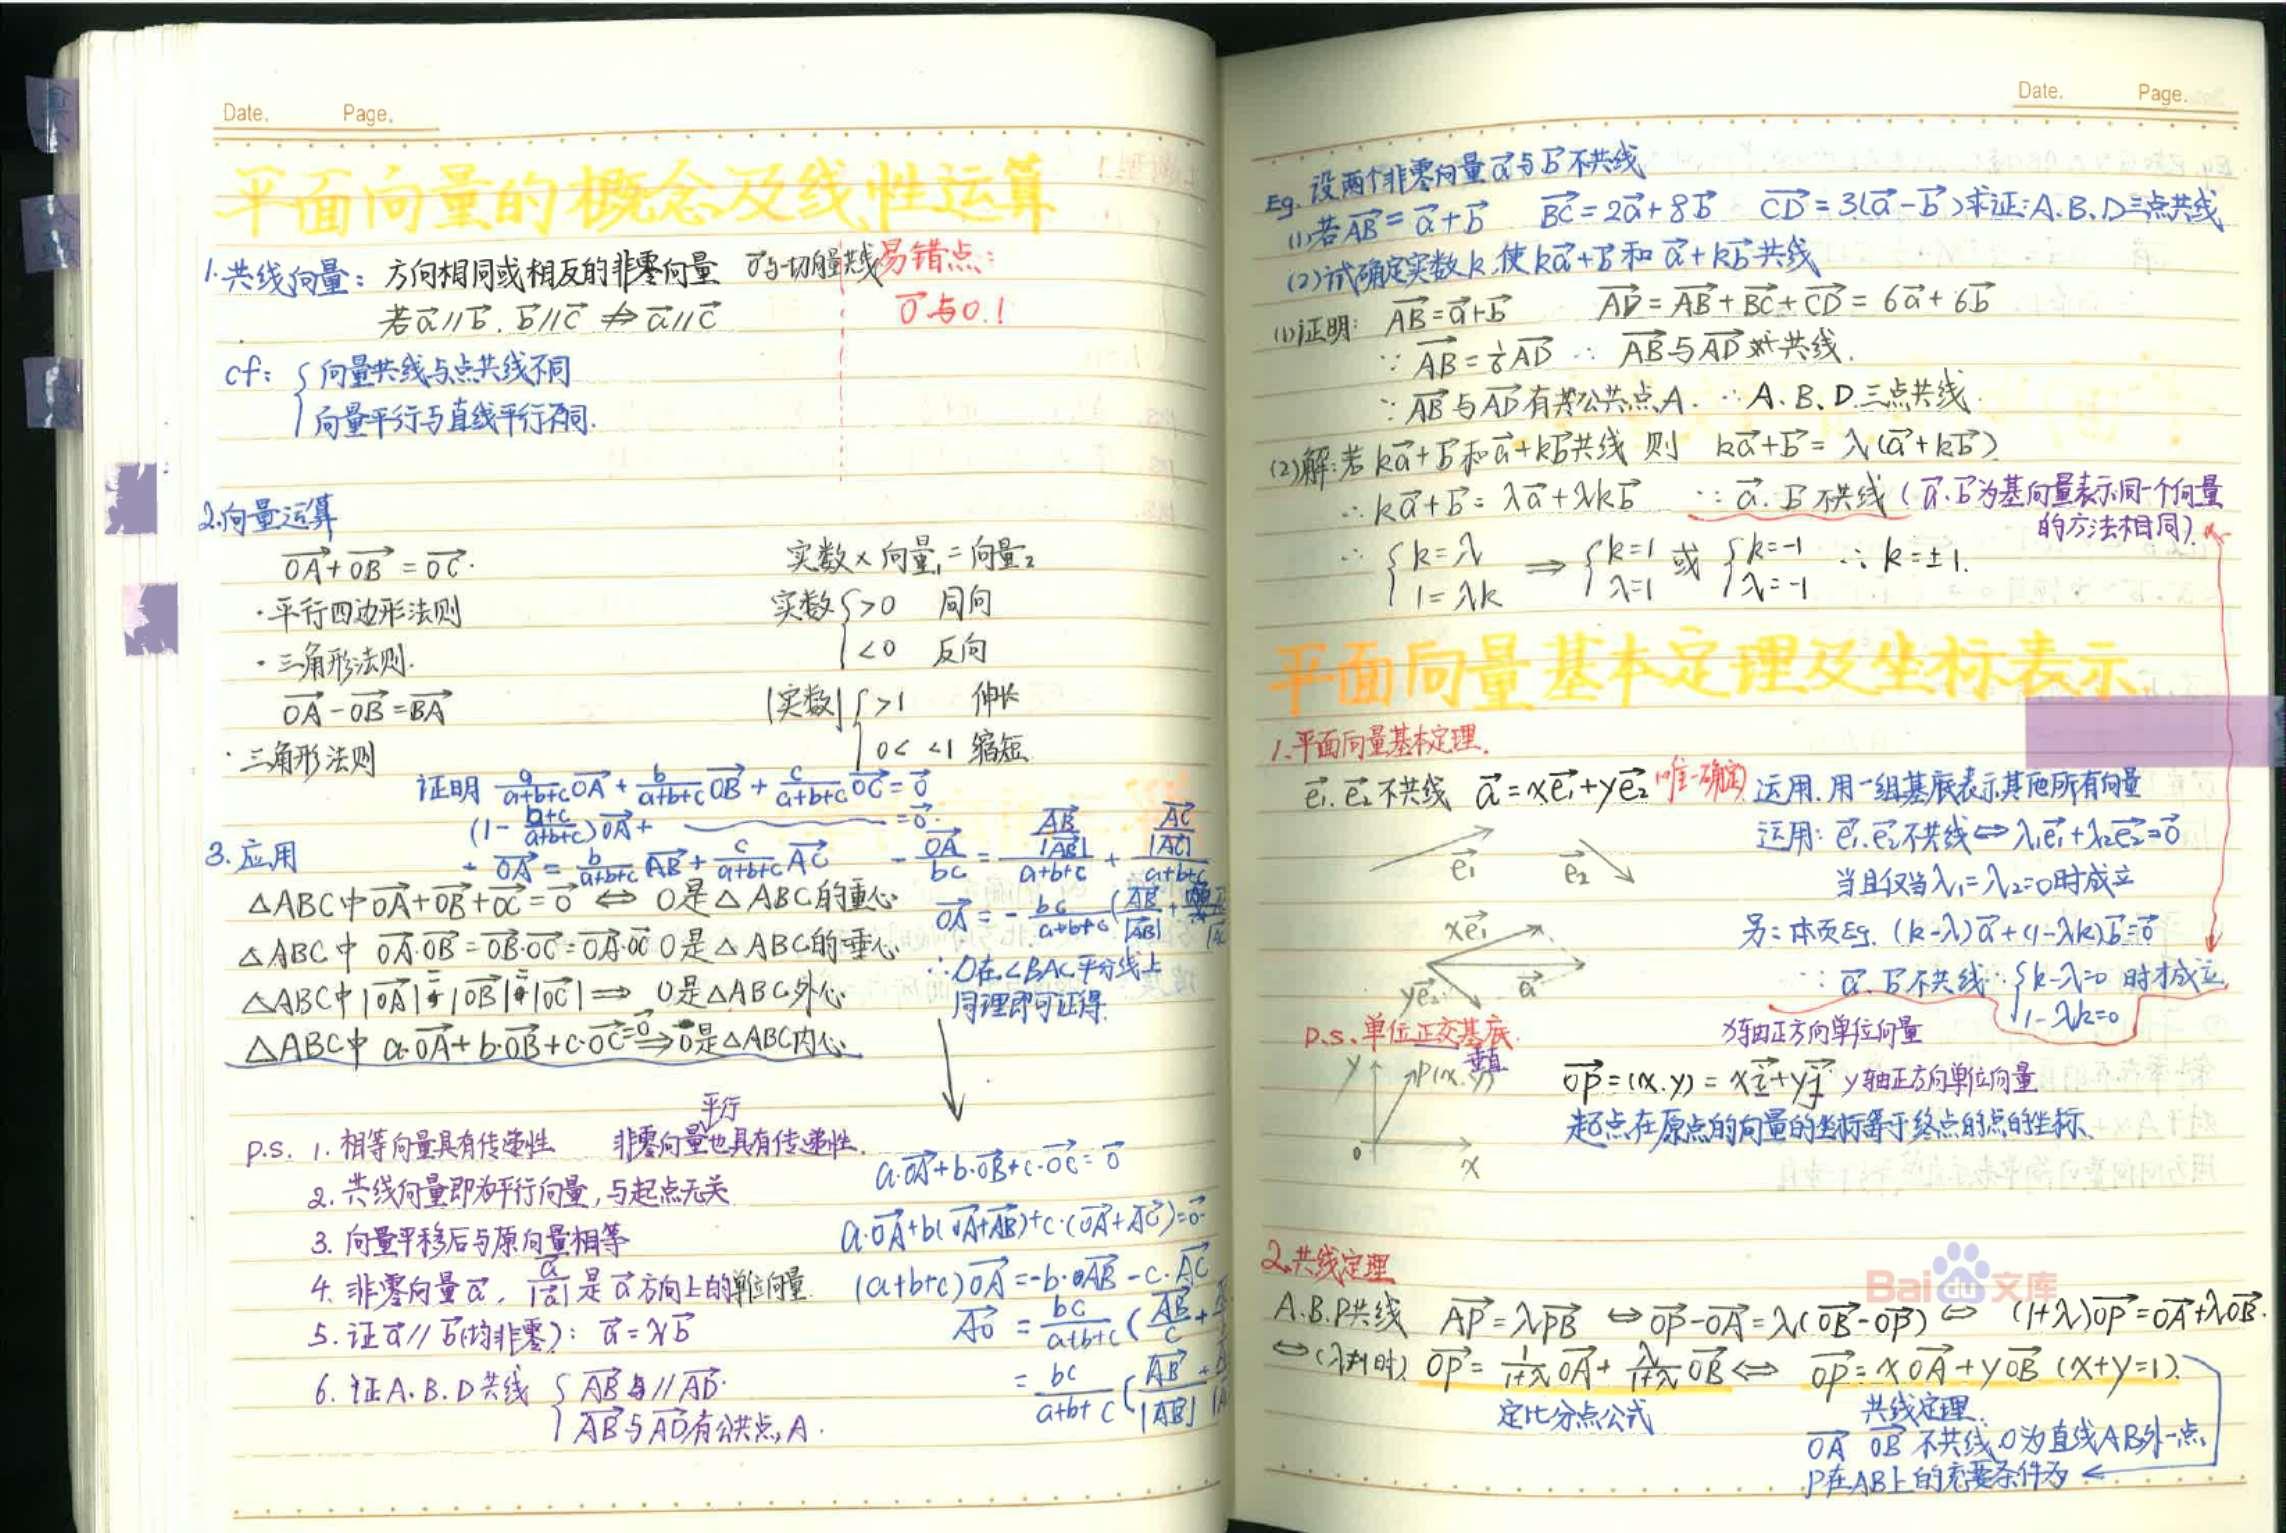 Date. Page.
平面向量的概念及线性运算
1.共线向量: 方向相同或相反的非零向量 0⃗与一切向量共线
若a⃗//b⃗, b⃗//c⃗ ⇏ a⃗//c⃗
易错点:
0⃗与0.!
cf: { 向量共线与点共线不同
向量平行与直线平行不同.
2.向量运算
OA⃗+OB⃗=OC⃗.
·平行四边形法则
·三角形法则.
OA⃗-OB⃗=BA⃗
·三角形法则
实数×向量₁=向量₂
实数{ >0 同向
<0 反向
|实数|{ >1 伸长
0< <1 缩短
证明 a/(a+b+c) OA⃗ + b/(a+b+c) OB⃗ + c/(a+b+c) OC⃗ = 0⃗
(1-(b+c)/(a+b+c))OA⃗+ =0⃗.
- OA⃗ = b/(a+b+c) AB⃗ + c/(a+b+c) AC⃗
-OA⃗/bc = (AB⃗/|AB⃗|)/(a+b+c) + (AC⃗/|AC⃗|)/(a+b+c)
OA⃗ = -bc/(a+b+c) (AB⃗/|AB⃗| +
∴O在∠BAC平分线上
同理即可证得.
3.应用
△ABC中OA⃗+OB⃗+OC⃗=0⃗ ⇔ O是△ABC的重心
△ABC中 OA⃗·OB⃗=OB⃗·OC⃗=OA⃗·OC⃗ O是△ABC的垂心
△ABC中|OA⃗|=|OB⃗|=|OC⃗| ⇒ O是△ABC外心
△ABC中 a·OA⃗+b·OB⃗+c·OC⃗=0⃗ ⇒ O是△ABC内心
平行
P.S. 1.相等向量具有传递性 非零向量也具有传递性.
2.共线向量即为平行向量,与起点无关
3.向量平移后与原向量相等
4.非零向量a⃗, a⃗/|a⃗|是a⃗方向上的单位向量.
5.证a⃗//b⃗(均非零): a⃗=λb⃗
6.证A.B.D共线 { AB⃗//AD⃗.
AB⃗与AD⃗有公共点,A.
a·OA⃗+b·OB⃗+c·OC⃗=0⃗
a·OA⃗+b(OA⃗+AB⃗)+c·(OA⃗+AC⃗)=0⃗
(a+b+c)OA⃗=-b·AB⃗-c·AC⃗
AO⃗ = bc/(a+b+c) (AB⃗/c +
= bc/(a+b+c) (AB⃗/|AB⃗| +
Date. Page.
Eg. 设两个非零向量a⃗与b⃗不共线
(1)若AB⃗=a⃗+b⃗ BC⃗=2a⃗+8b⃗ CD⃗=3(a⃗-b⃗)求证:A.B.D三点共线
(2)试确定实数k,使ka⃗+b⃗和a⃗+kb⃗共线
(1)证明: AB⃗=a⃗+b⃗ AD⃗=AB⃗+BC⃗+CD⃗=6a⃗+6b⃗
∵AB⃗=1/6AD⃗ ∴AB⃗与AD⃗共线.
∵AB⃗与AD⃗有公共点A. ∴A.B.D三点共线.
(2)解:若ka⃗+b⃗和a⃗+kb⃗共线 则 ka⃗+b⃗=λ(a⃗+kb⃗)
∴ka⃗+b⃗=λa⃗+λkb⃗ ∵a⃗.b⃗不共线(a⃗.b⃗为基向量表示同一个向量
的方法相同).
∴{ k=λ 1=λk ⇒ { k=1 λ=1 或 { k=-1 λ=-1 ∴k=±1.
平面向量基本定理及坐标表示
1.平面向量基本定理.
e₁⃗.e₂⃗不共线 a⃗=xe₁⃗+ye₂⃗(唯一确定)
运用.用一组基底表示其他所有向量
运用: e₁⃗.e₂⃗不共线⇔λ₁e₁⃗+λ₂e₂⃗=0⃗
当且仅当λ₁=λ₂=0时成立
另:本页Eg. (k-λ)a⃗+(1-λk)b⃗=0⃗
∵a⃗.b⃗不共线∴{ k-λ=0 1-λk=0 时才成立
e₁⃗ e₂⃗
xe₁⃗
ye₂⃗ a⃗
P.S.单位正交基底.
垂直
y P(x.y)
0 x
x轴正方向单位向量
OP⃗=(x.y)=xi⃗+yj⃗ y轴正方向单位向量
起点在原点的向量的坐标等于终点的点的坐标.
2.共线定理
Bai du 文库
A.B.P共线 AP⃗=λPB⃗ ⇔OP⃗-OA⃗=λ(OB⃗-OP⃗) ⇔ (1+λ)OP⃗=OA⃗+λOB⃗.
⇔(λ≠1时) OP⃗=1/(1+λ) OA⃗+λ/(1+λ) OB⃗ ⇔ OP⃗=xOA⃗+yOB⃗ (x+y=1).
定比分点公式 共线定理.
OA⃗ OB⃗不共线,O为直线AB外一点,
P在AB上的充要条件为